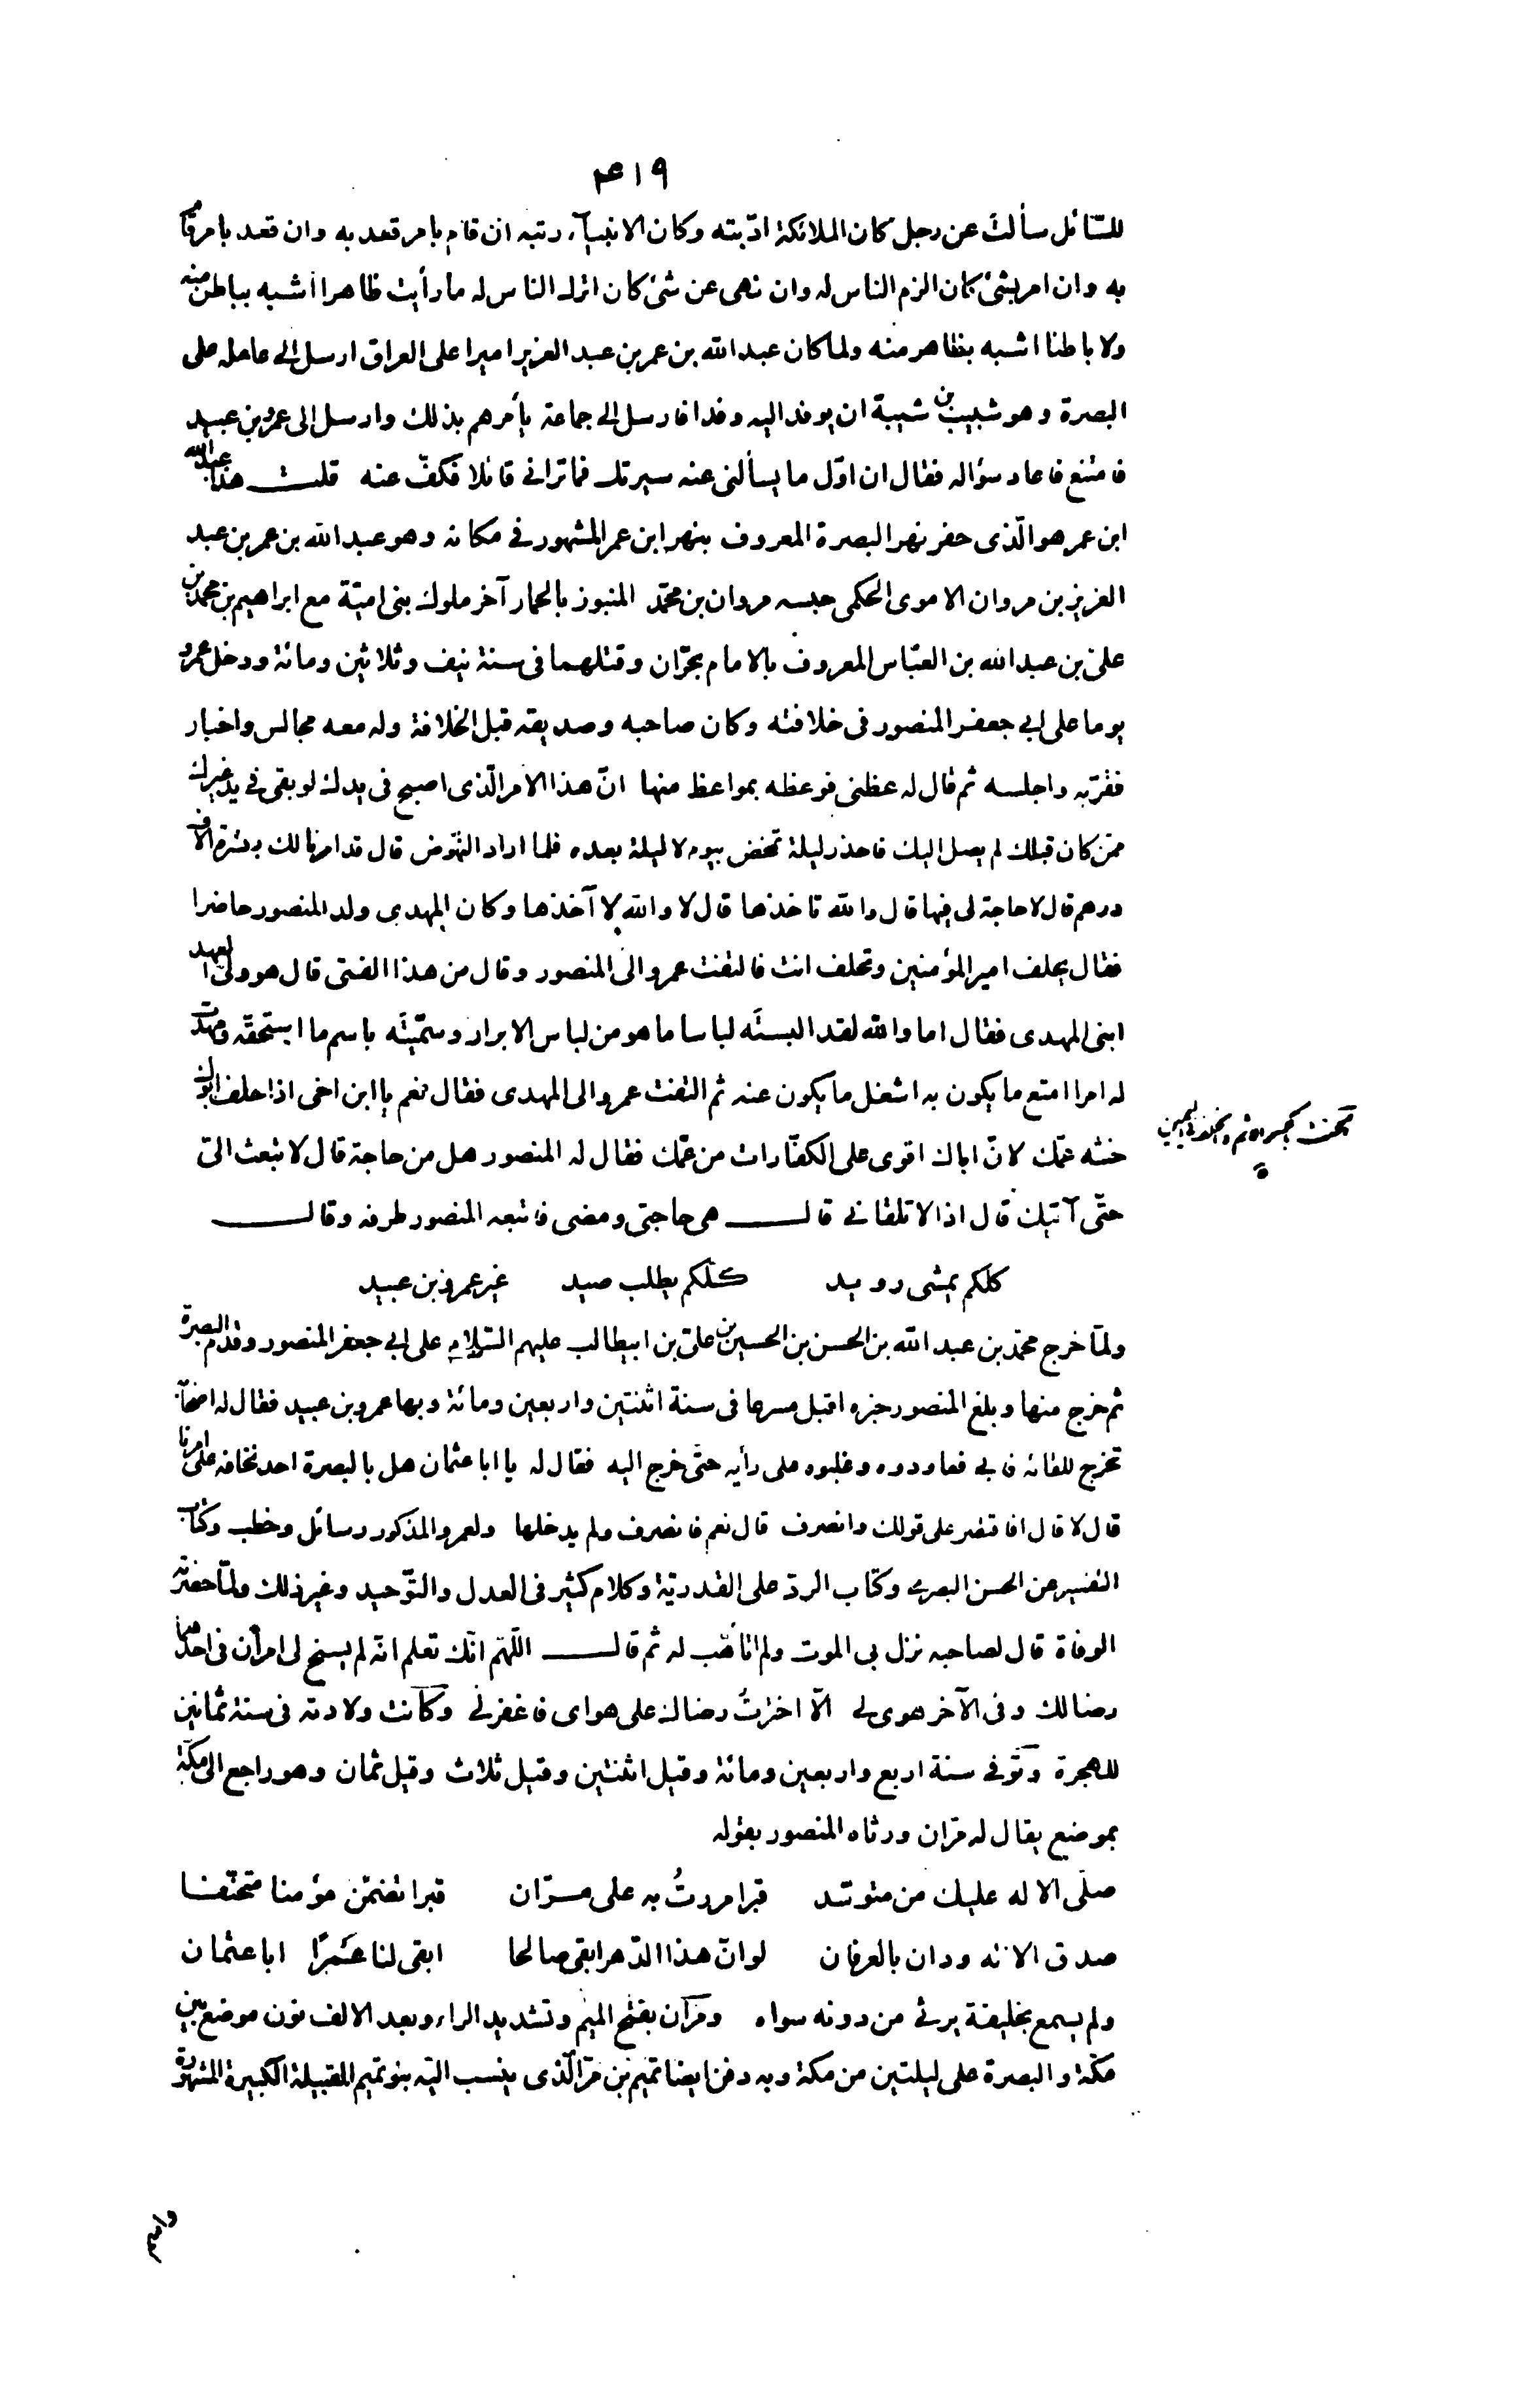 ٤١٩
للسّائل سألتَ عن رجل كان الملائكة ادّبته وكان الانبيآء ربته ان قام بامر قعد به وان قعد بامر قام
به وان امر بشئ كان الزم الناس له وان نهى عن شئ كان اترك الناس له ما رأيت ظاهرا أشبه بباطن منه
ولا باطنا اشبه بظاهر منه ولما كان عبد الله بن عمر بن عبد العزيز اميرا على العراق ارسل الى عامله على
البصرة وهو شبيب بن شيبة ان يوفد اليه وفدا فارسل الى جماعة يأمرهم بذلك وارسل الى عمرو بن عبيد
فامتنع فاعاد سؤاله فقال ان اوّل ما يسألنى عنه سيرتك فما ترانى قائلا فكفّ عنه قلت هذا عبد الله
ابن عمر هو الّذى حفر نهر البصرة المعروف بنهر ابن عمر المشهور فى مكانه وهو عبد الله بن عمر بن عبد
العزيز بن مروان الاموى الحكمى حبسه مروان بن محمّد المنبوز بالحمار آخر ملوك بنى اميّة مع ابراهيم بن محمد بن
على بن عبد الله بن العبّاس المعروف بالامام بحرّان وقتلهما فى سنة نيف وثلاثين ومائة ودخل عمرو
يوما على ابى جعفر المنصور فى خلافته وكان صاحبه وصديقه قبل الخلافة وله معه مجالس واخبار
فقرّبه واجلسه ثم قال له عظنى فوعظه بمواعظ منها انّ هذا الامر الّذى اصبح فى يدك لو بقى فى يد غيرك
ممّن كان قبلك لم يصل اليك فاحذر ليلة تمخض بيوم لا ليلة بعده فلما اراد النهّوض قال قد امرنا لك بعشرة الاف
درهم قال لا حاجة لى فيها قال والله تاخذها قال لا والله لا آخذها وكان المهدى ولد المنصور حاضرا
فقال يحلف امير المؤمنين وتحلف انت فالتفت عمرو الى المنصور وقال من هذا الفتى قال هو ولىّ العهد
ابنى المهدى فقال اما والله لقد البستَه لباسا ما هو من لباس الابرار وسمّيتَه باسم ما استحقّه ومهدت
له امرا امتع ما يكون به اشغل ما يكون عنه ثم التفت عمرو الى المهدى فقال نعم يا ابن اخى اذا حلف ابوك
حنثه عمّك لانّ اباك اقوى على الكفّارات من عمّك فقال له المنصور هل من حاجة قال لا تبعث الىّ
حتّى آتيك قال اذا لا تلقانى قال هى حاجتى ومضى فاتبعه المنصور طرفه وقال
كلكم يمشى رويد كلكم يطلب صيد غير عمرو بن عبيد
ولمّا خرج محمّد بن عبد الله بن الحسن بن الحسين بن علىّ بن ابيطالب عليهم السّلام على ابى جعفر المنصور وقدم البصرة
ثم خرج منها وبلغ المنصور خبره اقبل مسرعا فى سنة اثنتين واربعين ومائة وبها عمرو بن عبيد فقال له اصحابه
تخرج للقائه فابى فعاودوه وغلبوه على رأيه حتّى خرج اليه فقال له يا ابا عثمان هل بالبصرة احد نخافه على امرنا
قال لا قال افاقتصر على قولك وانصرف قال نعم فانصرف ولم يدخلها ولعمرو المذكور رسائل وخطب وكتاب
التفسير عن الحسن البصرى وكتاب الردّ على القدريّة وكلام كثير فى العدل والتّوحيد وغير ذلك ولمّا حضرته
الوفاة قال لصاحبه نزل بى الموت ولم اتأهّب له ثم قال اللّهمّ انّك تعلم انّه لم يسنح لى امران فى احدهما
رضا لك وفى الآخر هوى لى الّا اخترتُ رضاك على هواى فاغفر لى وكانت ولادته فى سنة ثمانين
للهجرة وتوفى سنة اربع واربعين ومائة وقيل اثنتين وقيل ثلاث وقيل ثمان وهو راجع الى مكّة
بموضع يقال له مرّان ورثاه المنصور بقوله
صلّى الاله عليك من متوسّد قبرا مررتُ به على مرّان قبرا تضمّن مؤمنا متحنّفا
صدق الاله ودان بالعرفان لو انّ هذا الدّهر ابقى صالحا ابقى لنا عَمرًا ابا عثمان
ولم يسمع بخليفة يرثى من دونه سواه ومرّان بفتح الميم وتشديد الراء وبعد الالف نون موضع بين
مكّة والبصرة على ليلتين من مكة وبه دفن ايضا تميم بن مرّ الّذى ينسب اليّه بنو تميم القبيلة الكبيرة المشهورة
الحنث بكسر الاثم والخلف فى اليمين